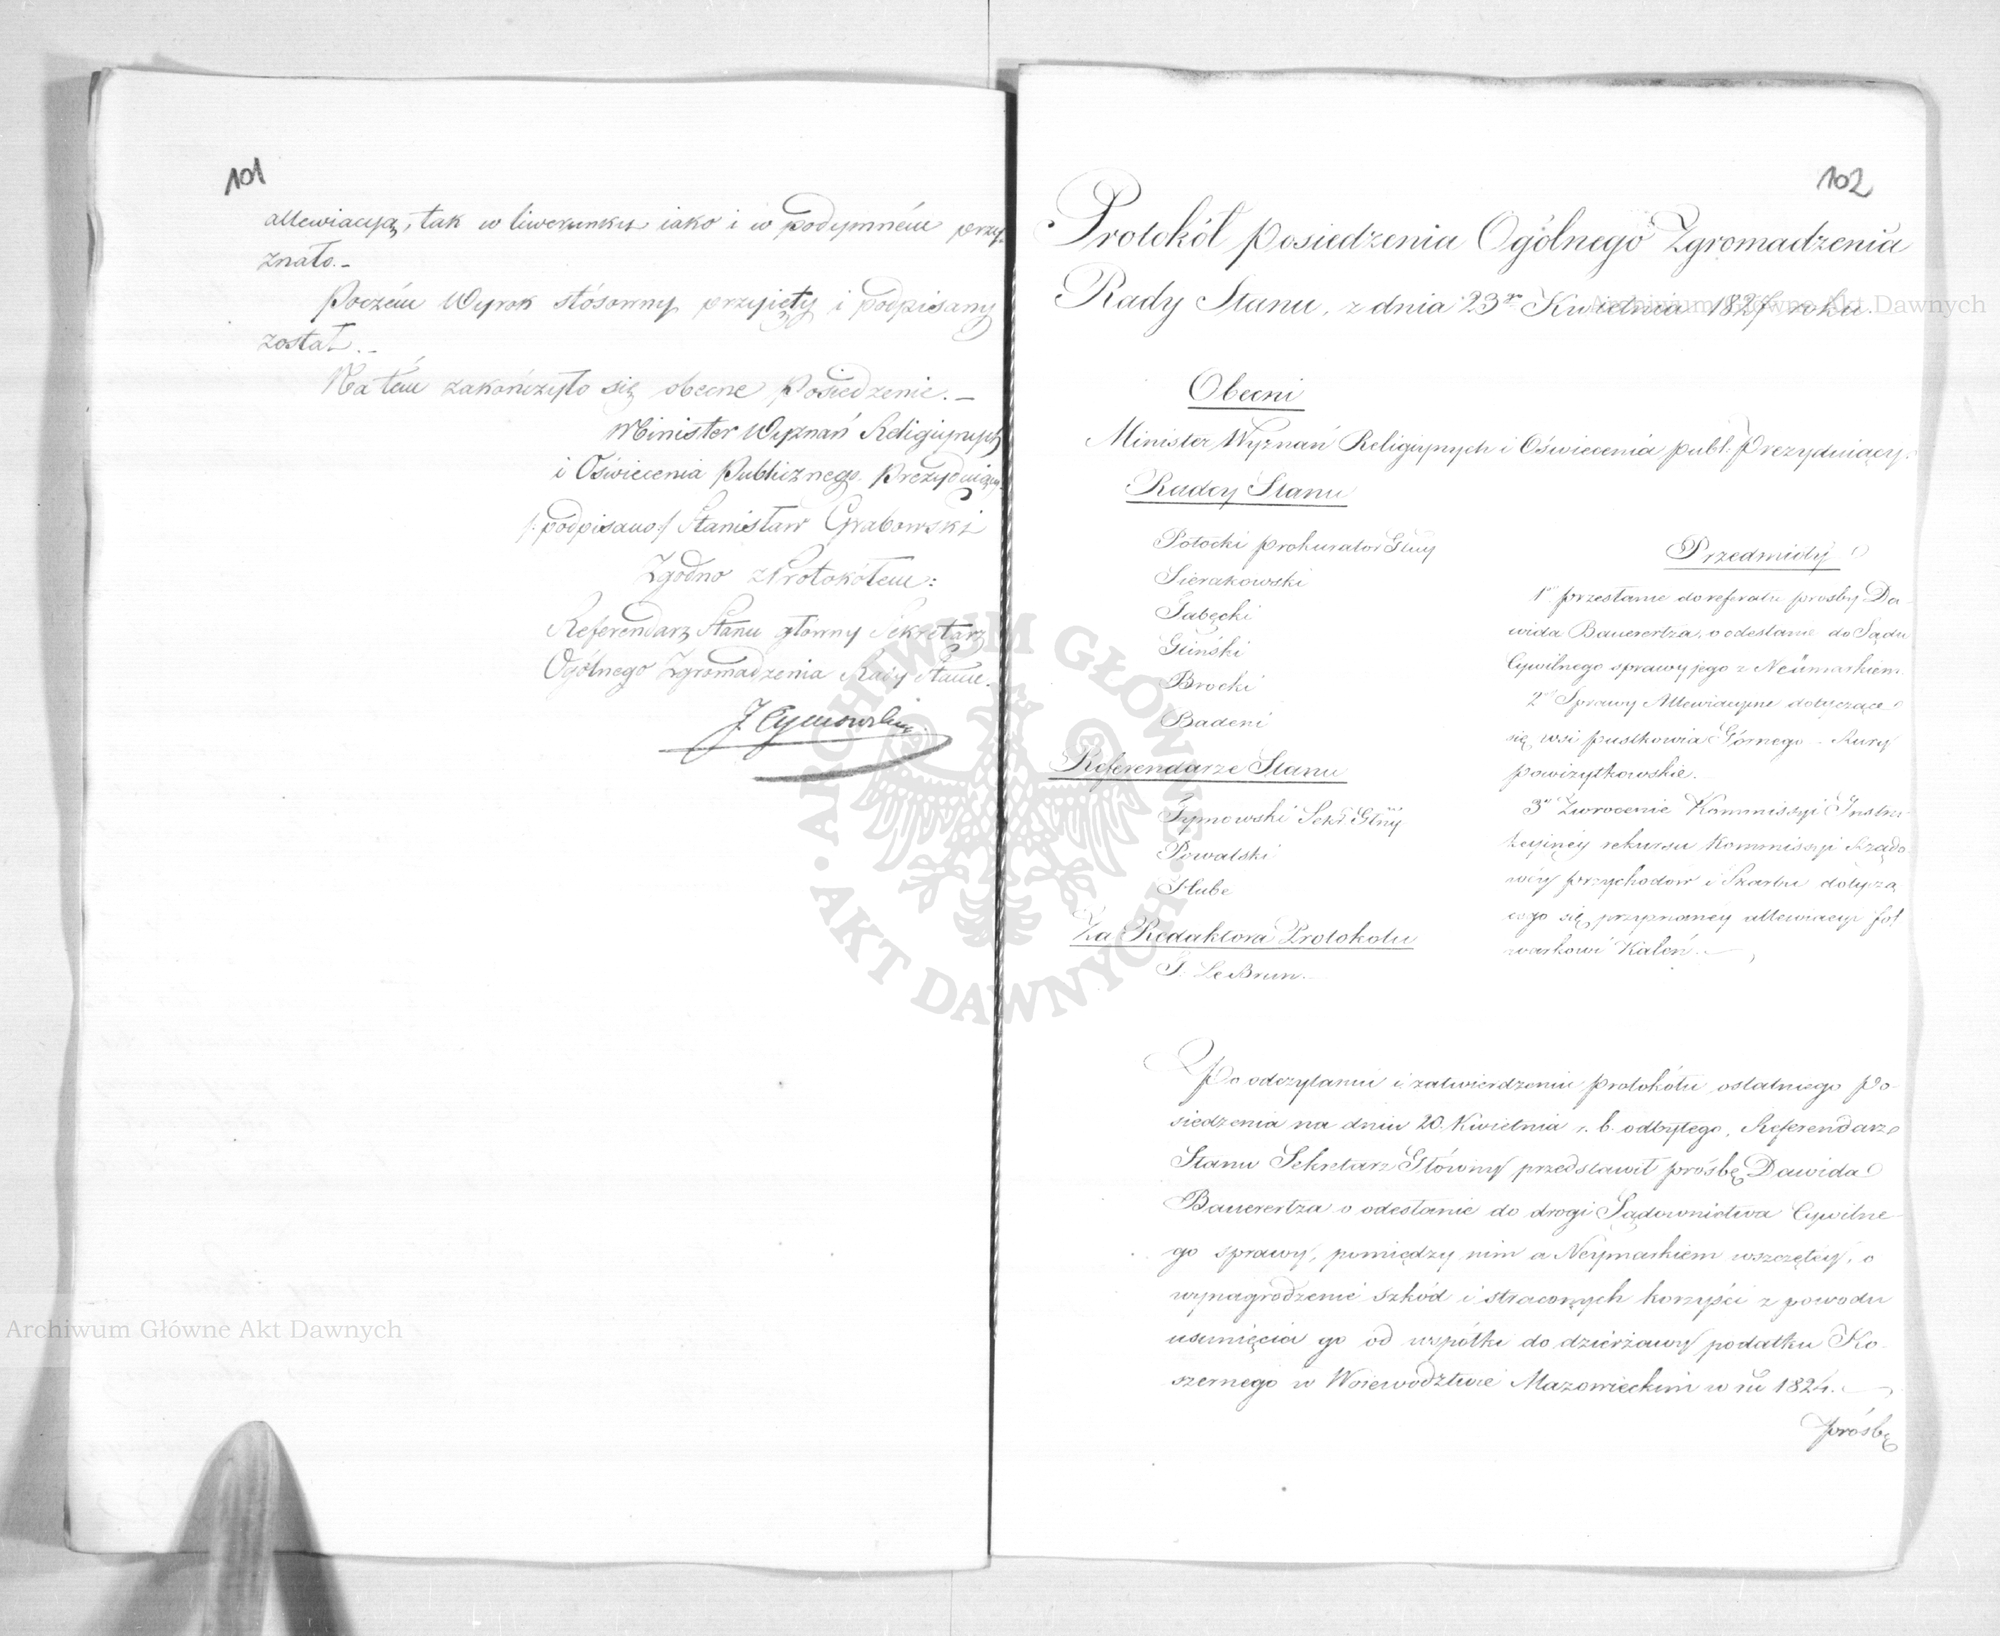 101
allewiacyą, tak w liwerunku iako i w podymném przy-
znało.—
Poczém Wyrok stósowny przyięty i podpisany
został.—
Na tém zakończyło się obecne Posiedzenie.—
Minister Wyznań Religiynych
i Oświecenia Publicznego. Prezyduiący.
/:podpisano:/ Stanisław Grabowski
Zgodno z Protokółem:
Referendarz Stanu główny Sekretarz
Ogólnego Zgromadzenia Rady Stanu.
102
Protokół Posiedzenia Ogólnego Zgromadzenia
Rady Stanu, z dnia 23go Kwietnia 1827 roku.
Obecni
Minister Wyznań Religiynych i Oświecenia publ. Prezyduiący.
Radcy Stanu
Potocki Prokurator Glny
Sierakowski
Gliński
Brocki
Badeni
Referendarze Stanu
Tymowski Sekr. Głny
Powalski
Hube
Za Redaktora Protokołu
LeBrun.
Przedmioty
1o przesłanie do referatu prosby Da-
wida Bauerertza, o odesłanie do Sądu
Cywilnego sprawy jego z Neümarkiem.
2o Sprawy Allewiacyine dotyczące
się wsi pustkowia Górnego - Rury
powizytkowskie.
3o Zwrocenie Kommissyi Instru-
kcyinéy rekursu Kommissyi Rządo-
wéy przychodow i Skarbu dotyczą
cego się przyznaney allewiacyi fol
warkowi Kaleń.—
Po odczytaniu i zatwierdzeniu protokółu ostatniego Po-
siedzenia na dniu 20. Kwietnia r. b. odbytego, Referendarz
Stanu Sekretarz Główny przedstawił prośbę Dawida
Bauerertza o odesłanie do drogi Sądownictwa Cywilne-
go sprawy, pomiędzy nim a Neymarkiem wszczętéy, o
wynagrodzenie szkód i straconych korzyści z powodu
usunięcia go od wspólki do dzierżawy podatku Ko-
szernego w Woiewództwie Mazowieckim w ru 1824.—
prósbę
Archiwum Główne Akt Dawnych
Archiwum Główne Akt Dawnych
ARCHIWUM GŁÓWNE · AKT DAWNYCH ·